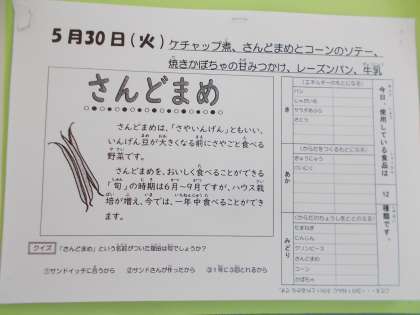 5月30日(火) ケチャップ煮、さんどまめとコーンのソテー、
焼きかぼちゃの甘みつかけ、レーズンパン、牛乳
さんどまめ
さんどまめは、「さやいんげん」ともいい、
いんげん豆が大きくなる前にさやごと食べる
野菜です。
さんどまめを、おいしく食べることができる
「旬」の時期は6月~9月ですが、ハウス栽
培が増え、今では、一年中食べることができ
ます。
クイズ 「さんどまめ」という名前がついた理由は何でしょうか?
①サンドイッチに合うから ②サンドさんが作ったから ③1年に3回とれるから
今日、使用している食品は 12 種類です。
き
(エネルギーのもとになる)
パン
じゃがいも
サラダあぶら
さとう
あか
(からだをつくるもとになる)
ぎゅうにゅう
みどり
(からだのちょうしをととのえる)
たまねぎ
にんじん
グリンピース
さんどまめ
コーン
かぼちゃ